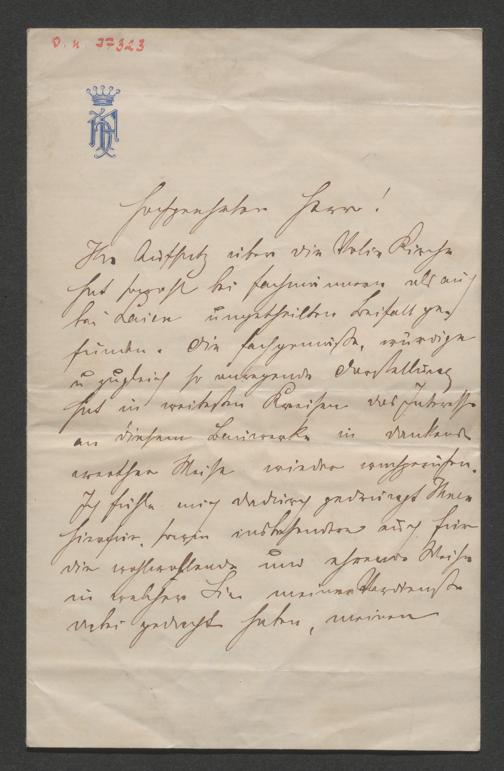 O. N. 37323
Hochgeehrter Herr!
Ihr Aufsatz über die Votiv Kirche
hat sowohl bei Fachmännern als auch
bei Laien ungetheilten Beifall ge-
funden. Die fachgemäße, würdige
u zugleich so anregende Darstellung
hat in weitesten Kreisen das Interesse
an diesem Bauwerke in dankens
werther Weise wieder wachgerufen.
Ich fühle mich dadurch gedrängt Ihnen
hierfür, sowie insbesondere auch für
die wohlwollende und ehrende Weise
in welcher Sie meiner Verdienste
dabei gedacht haben, meinen